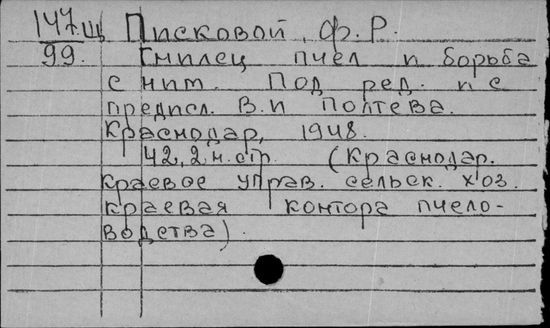 147.Щ Писковой, Ф. Р.
99. Гнилец пчел и борьба
с ним. Под ред. и с
предисл. В. И Полтева.
Краснодар, 1948.
42, 2 н. стр. (Краснодар.
краевое управ. сельск. хоз.
краевая контора пчело-
водства).